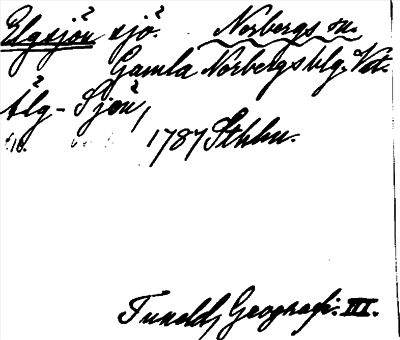 Elgsjön sjö. Norbergs sn.
Gamla Norbergs blg. Vstm.
Älg-Sjön,
1787 Sthlm.
Tuneld, Geografi. III.